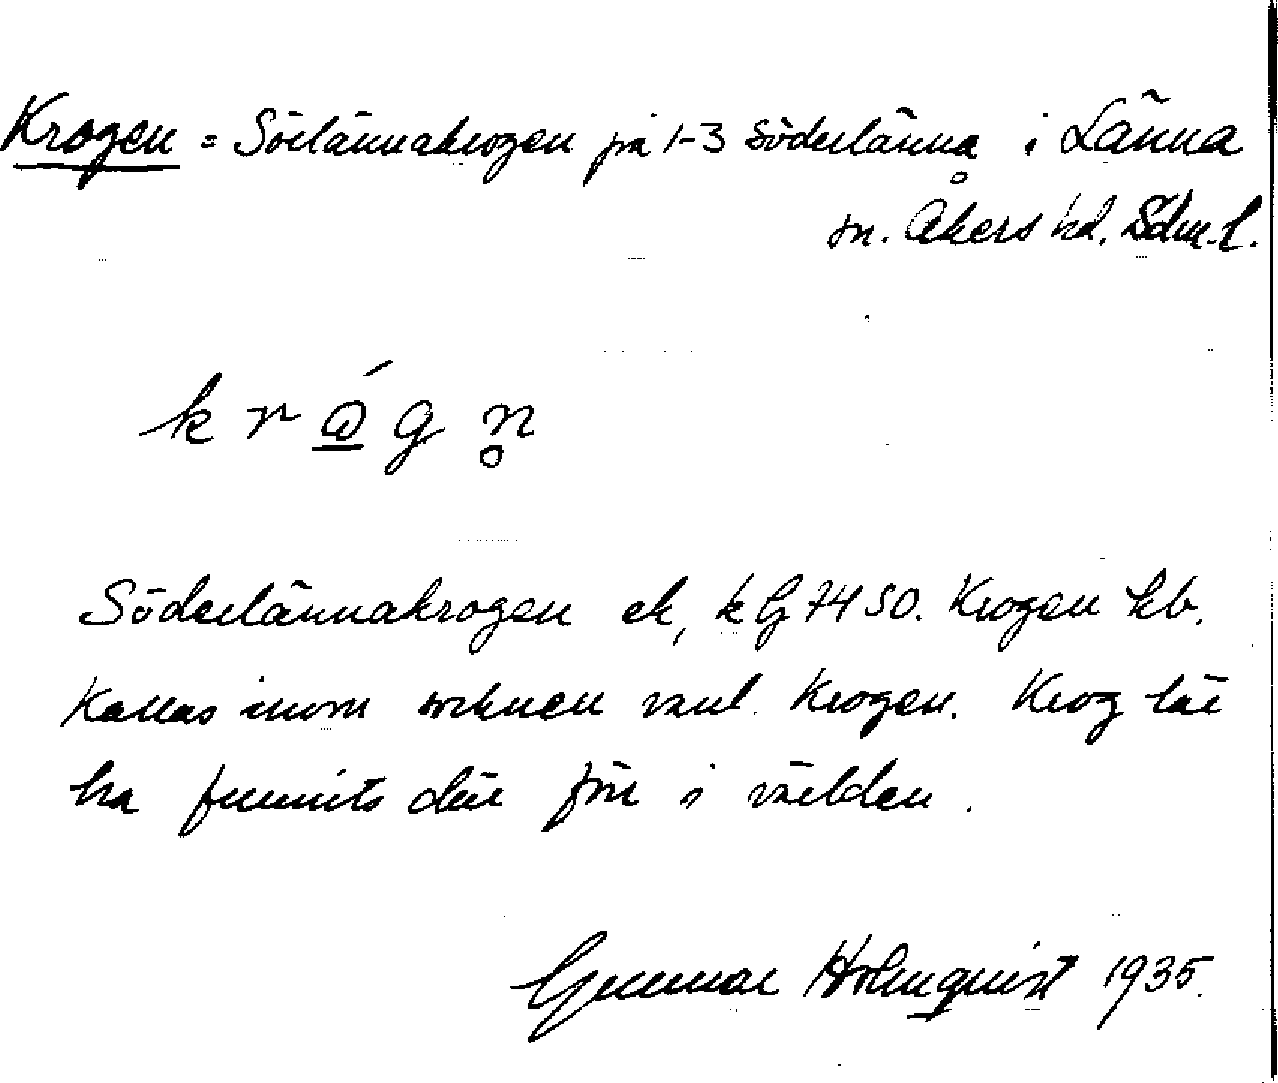 Krogen = Sörlännakrogen på 1-3 Söderlänna i Länna
sn. Åkers hd. Södm. l.
k r ó g n̥
Söderlännakrogen ek, k Gj 74 50. Krogen kb.
Kallas inom socknen vanl. Krogen. Krog lär
ha funnits där förr i världen.
Gunnar Holmquist 1935.